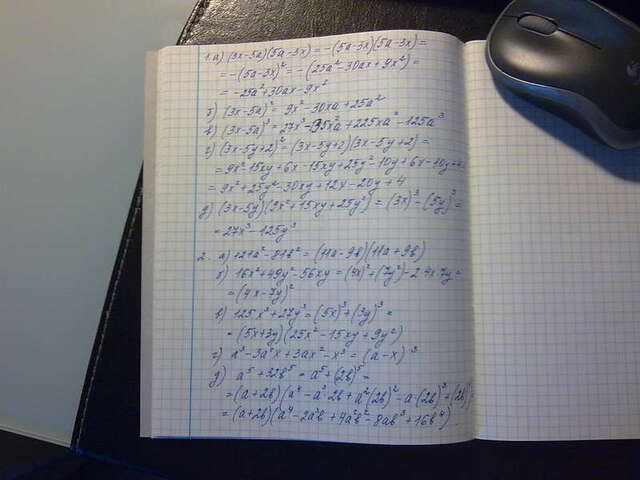 1. а) (3x-5a)(5a-3x) = -(5a-3x)(5a-3x) =
= -(5a-3x)² = -(25a²-30ax+9x²) =
= -25a²+30ax-9x²
б) (3x-5a)² = 9x²-30xa+25a²
в) (3x-5a)³ = 27x³-135x²a+225xa²-125a³
г) (3x-5y+2)² = (3x-5y+2)(3x-5y+2) =
= 9x²-15xy+6x-15xy+25y²-10y+6x-10y+4 =
= 9x²+25y²-30xy+12x-20y+4
д) (3x-5y)(9x²+15xy+25y²) = (3x)³-(5y)³ =
= 27x³-125y³
2. а) 121a²-81b² = (11a-9b)(11a+9b)
б) 16x²+49y²-56xy = (4x)²+(7y)²-2·4x·7y =
= (4x-7y)²
в) 125x³+27y³ = (5x)³+(3y)³ =
= (5x+3y)(25x²-15xy+9y²)
г) a³-3a²x+3ax²-x³ = (a-x)³
д) a⁵+32b⁵ = a⁵+(2b)⁵ =
= (a+2b)(a⁴-a³·2b+a²(2b)²-a·(2b)³+(2b)
= (a+2b)(a⁴-2a³b+4a²b²-8ab³+16b⁴)